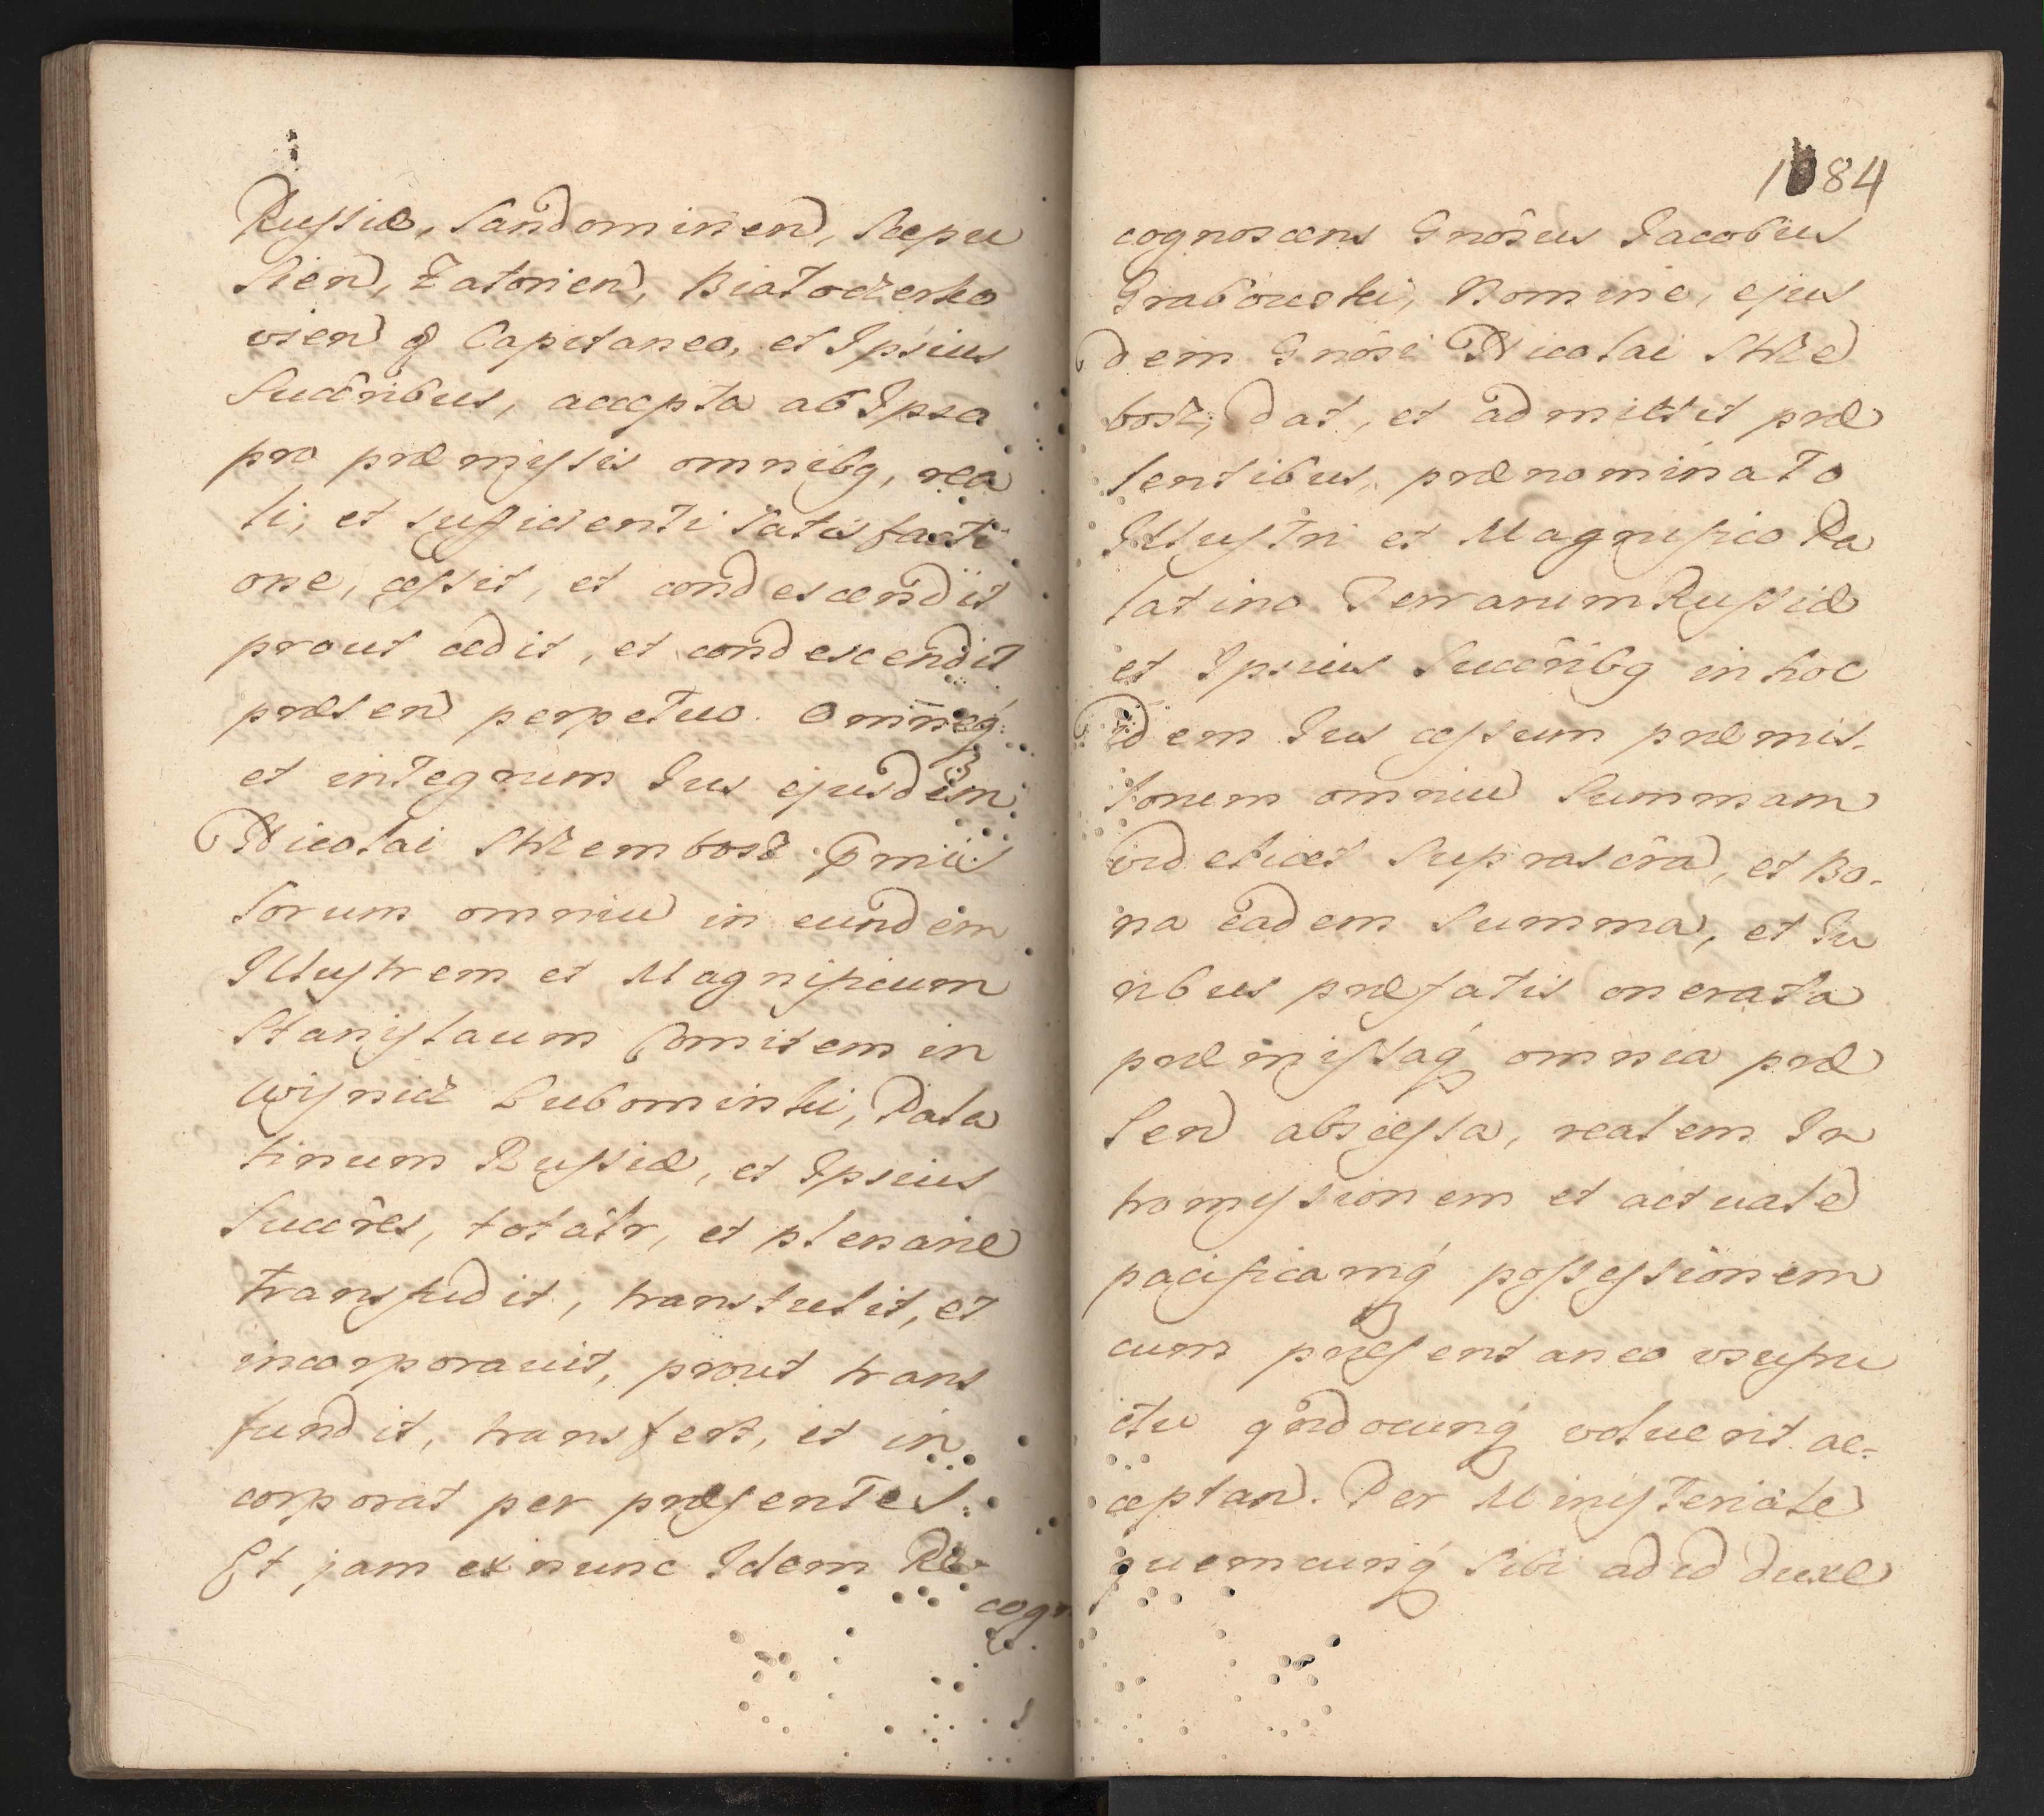 Russiæ, Sandominen, Scepu
sien, Zatorien, Biatocerko
vien q Capitaneo, et Ipsius
Succribus, accepta ab Ipso
pro præmissis omnibq, rea
li, et sufficienti satisfacti
one, cessit, et condescendit
prout cedit, et condescendit
præsen perpetuo. Omneq
et integrum Jus ejusdem
Nicolai Strzembosz pmis
sorum omniu in eundem
Illustrem et Magnificum
Stanislaum Comitem in
Wisnicz Lubomirski, Pala
tinum Russiæ, et Ipsius
Succres, totalr, et plenarie
transfudit, transtulit, et
incorporavit, prout trans
fundit, transfert, et in
corporat per præsentes.
Et jam ex nunc Idem Re-
cogn
1084
cognoscens Gnosus Jacobus
Grabowski, Nomine, ejus
dem Gnosi Nicolai Strze
bosz, dat, et admittit præ
sentibus, prænominato
Illustri et Magnifico Pa
latino Terrarum Russiæ
et Ipsius Succribq in hoc
idem Jus cessum præmis-
sorum omniu Summam
videlicet suprascra, et Bo-
na eadem Summa, et Ju
ribus præfatis onerata
præmissaq omnia præ
sen abscessa, realem In
tromissionem et actuale
pacificamq possessionem
cum præsentaneo usufru
ctu qndocunq voluerit ac-
ceptan. Per Ministeriale
quemcunq sibi ad id duxe